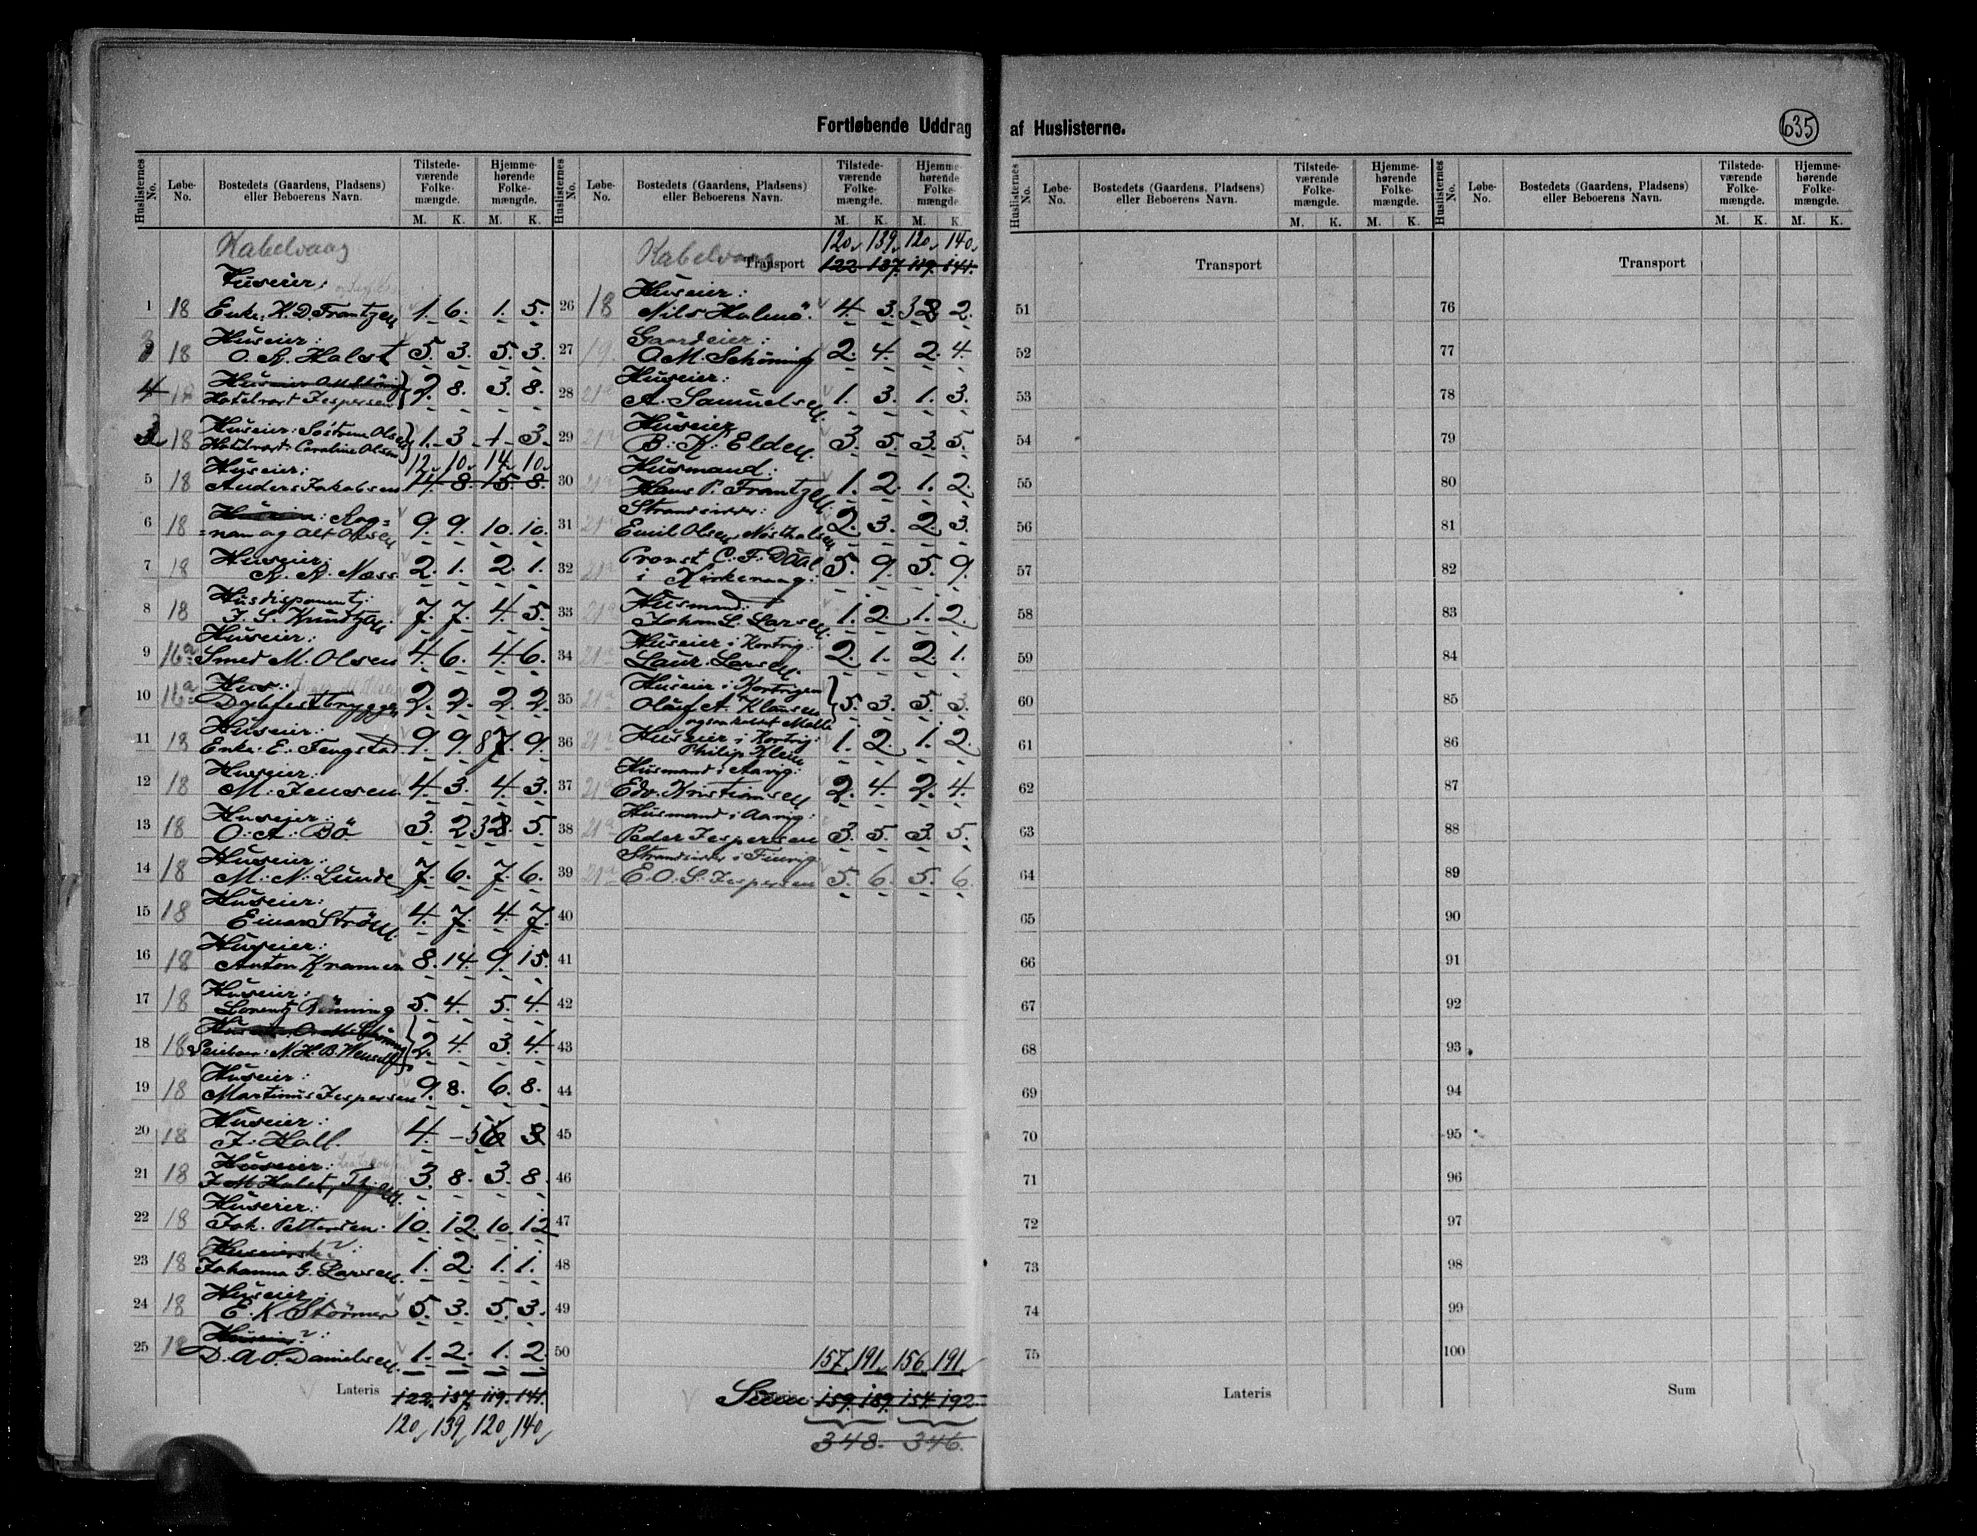 Fortløbende Uddrag af Huslisterne.
635
Huslisternes No. Løbe-No. Bostedets (Gaardens, Pladsens) eller Beboerens Navn. Tilstedeværende Folkemængde. M. K. Hjemmehørende Folkemængde. M. K.
Kabelvaag
Huseier:
1 18 Enke: K. D. Frantzen 1. 6. 1. 5.
Huseier:
18 O. A. Holst 5. 3. 5. 3.
Huseier
4 18 Hotelvært Jespersen 2. 8. 3. 8.
Huseier: Olsen
3 18 Hotelvært: Caroline Olsen 1. 3 1 3.
Huseier: 12 10 14 10
5 18 Anders Jakobsen 14. 8. 15. 8.
Huseier: Aag-
6 18 nam og Alf Olsen 9. 9. 10. 10.
Huseier:
7 18 A. A. Næss 2. 1. 2. 1.
Husdisponent:
8 18 J. S. Knudtzen 7. 7. 4. 5
Huseier:
9 16a Smed M. Olsen 4. 6. 4. 6.
Hus:
10 16a 2. 2. 2 2.
Huseier:
11 18 Enke: E. Tengstad 9. 9. 87. 9.
Huseier:
12 18 M. Jensen 4. 3. 4. 3.
Huseier:
13 18 O. A. Bö 3. 2 3 5.
Huseier:
14 18 M. N. Lunde 7. 6. 7. 6.
Huseier:
15 18 Einar Ström 4. 7. 4. 7.
Huseier:
16 18 Anton Kramer 8. 14. 9. 15.
Huseier:
17 18 Lorentz Rönning 5. 4. 5. 4.
18 18 N. H. B. 2. 4. 3. 4.
Huseier:
19 18 Martinus Jespersen 9. 8. 6. 8.
Huseier:
20 18 J. Hall. 4. – 5
Huseier:
21 18 J. M. Holst, 3. 8. 3. 8.
Huseier:
22 18 Joh. Pettersen. 10. 12. 10. 12
23 18 Johanna G. Larsen. 1. 2. 1. 1.
Huseier:
24 18 E. K. Störmer 5. 3. 5. 3.
Huseier:
25 18 D. A. Danielsen. 1. 2. 1. 2
Lateris 122. 137. 119. 141.
120, 139, 120, 140,
Huslisternes No. Løbe-No. Bostedets (Gaardens, Pladsens) eller Beboerens Navn. Tilstedeværende Folkemængde. M. K. Hjemmehørende Folkemængde. M. K.
120, 139, 120, 140,
Kabelvaag Transport 122 137. 119. 141.
Huseier:
26 18 Nils Holmö. 4. 3. 3 2.
Gaardeier:
27 19. O. M. Schöning 2. 4. 2. 4.
Huseier:
28 21a A. Samuelsen. 1. 3. 1. 3.
Huseier
29 21a B. K. Elden. 3. 5. 3. 5.
Husmand:
30 21a Hans P. Frantzen. 1. 2. 1. 2
Strandsidder:
31 21a Emil Olsen, 2. 3. 2. 3.
Pronst C. F. Daal
32 21a i Kirkevaag: 5. 9. 5. 9.
Husmand:
33 21a Johan L. Larsen. 1. 2. 1. 2.
Huseier i Kortvig:
34 21a Laur. Larsen. 2. 1. 2. 1.
Huseier i Kortvigen
35 21a Oluf A. Klausen 5. 3. 5. 3.
ogsaa kaldet Molla
Huseier i Kortvig:
36 21a Philip Klein 1. 2. 1. 2.
Husmand i Aavig:
37 21a Edv. Kristiansen 2. 4. 2. 4.
Husmand i Aavig:
38 21a Peder Jespersen 3. 5. 3. 5.
Strandsidder i Finvig
39 21a E. O. S. Jespersen 5. 6. 5. 6.
40
41
42
43
44
45
46
47
48
49
50
157, 191, 156, 191,
Sum 159. 189. 154. 192.
348. 346.
Huslisternes No. Løbe-No. Bostedets (Gaardens, Pladsens) eller Beboerens Navn. Tilstedeværende Folkemængde. M. K. Hjemmehørende Folkemængde. M. K.
Transport
51
52
53
54
55
56
57
58
59
60
61
62
63
64
65
66
67
68
69
70
71
72
73
74
75
Lateris
Huslisternes No. Løbe-No. Bostedets (Gaardens, Pladsens) eller Beboerens Navn. Tilstedeværende Folkemængde. M. K. Hjemmehørende Folkemængde. M. K.
Transport
76
77
78
79
80
81
82
83
84
85
86
87
88
89
90
91
92
93
94
95
96
97
98
99
100
Sum